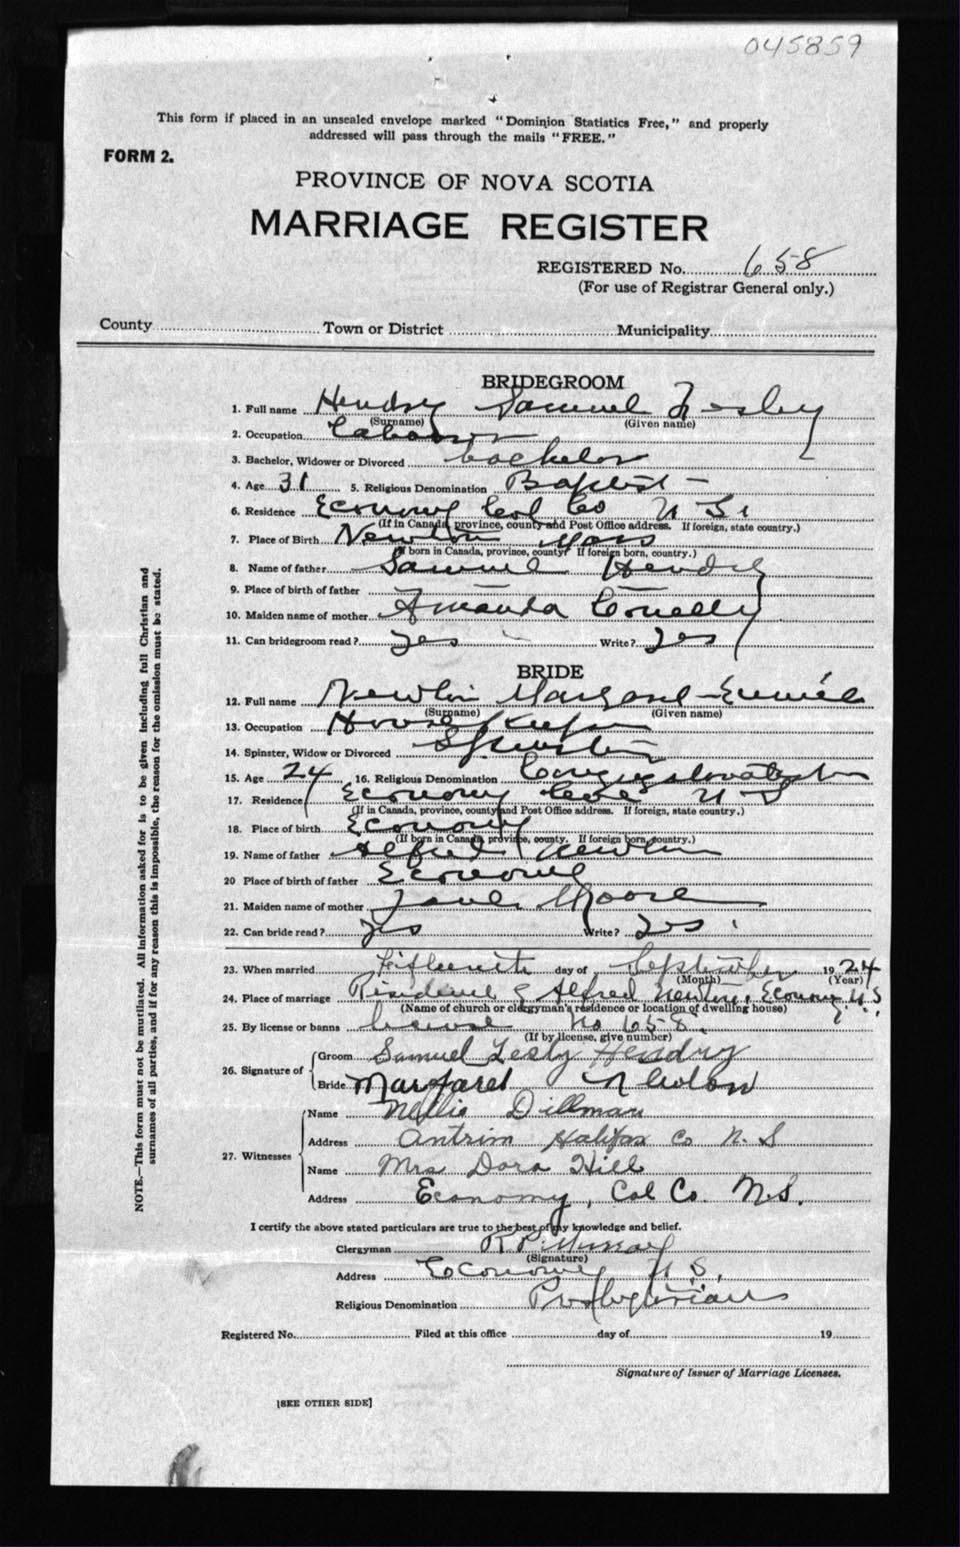 045859
This form if placed in an unsealed envelope marked "Dominion Statistics Free," and properly
addressed will pass through the mails "FREE."
FORM 2.
PROVINCE OF NOVA SCOTIA
MARRIAGE REGISTER
REGISTERED No. 658
(For use of Registrar General only.)
County Town or District Municipality
BRIDEGROOM
1. Full name Hendry Samuel Lesley
(Surname) (Given name)
2. Occupation Laborer
3. Bachelor, Widower or Divorced bachelor
4. Age 31 5. Religious Denomination Baptist
6. Residence Economy Col Co N S
(If in Canada, province, county and Post Office address. If foreign, state country.)
7. Place of Birth Newton Mass
(If born in Canada, province, county If foreign born, country.)
8. Name of father Samuel Hendry
9. Place of birth of father
10. Maiden name of mother Amanda Conelly
11. Can bridegroom read? yes Write? yes
BRIDE
12. Full name Margaret
(Surname) (Given name)
13. Occupation Housekeeper
14. Spinster, Widow or Divorced Spinster
15. Age 24 16. Religious Denomination Congregationalist
17. Residence Economy N S
(If in Canada, province, county and Post Office address. If foreign, state country.)
18. Place of birth Economy
(If born in Canada, province, county. If foreign born, country.)
19. Name of father Alfred
20 Place of birth of father Economy
21. Maiden name of mother Moore
22. Can bride read? yes Write? yes
23. When married Fifteenth day of September 1924
(Month) (Year)
24. Place of marriage Residence of Alfred Newton, Economy N.S.
(Name of church or clergyman's residence or location of dwelling house)
25. By license or banns license No 658.
(If by license, give number)
26. Signature of
Groom Samuel Lesly Hendry
Bride Margaret
27. Witnesses
Name Nellie Dillman
Address Antrim Halifax Co N.S
Name Mrs Dora Hill
Address Economy, Col Co. N.S.
I certify the above stated particulars are true to the best of my knowledge and belief.
Clergyman R P Murray
(Signature)
Address Economy N.S.
Religious Denomination Presbyterian
Registered No. Filed at this office day of 19
Signature of Issuer of Marriage Licenses.
[SEE OTHER SIDE]
NOTE.—This form must not be mutilated. All information asked for is to be given including full Christian and
surnames of all parties, and if for any reason this is impossible, the reason for the omission must be stated.